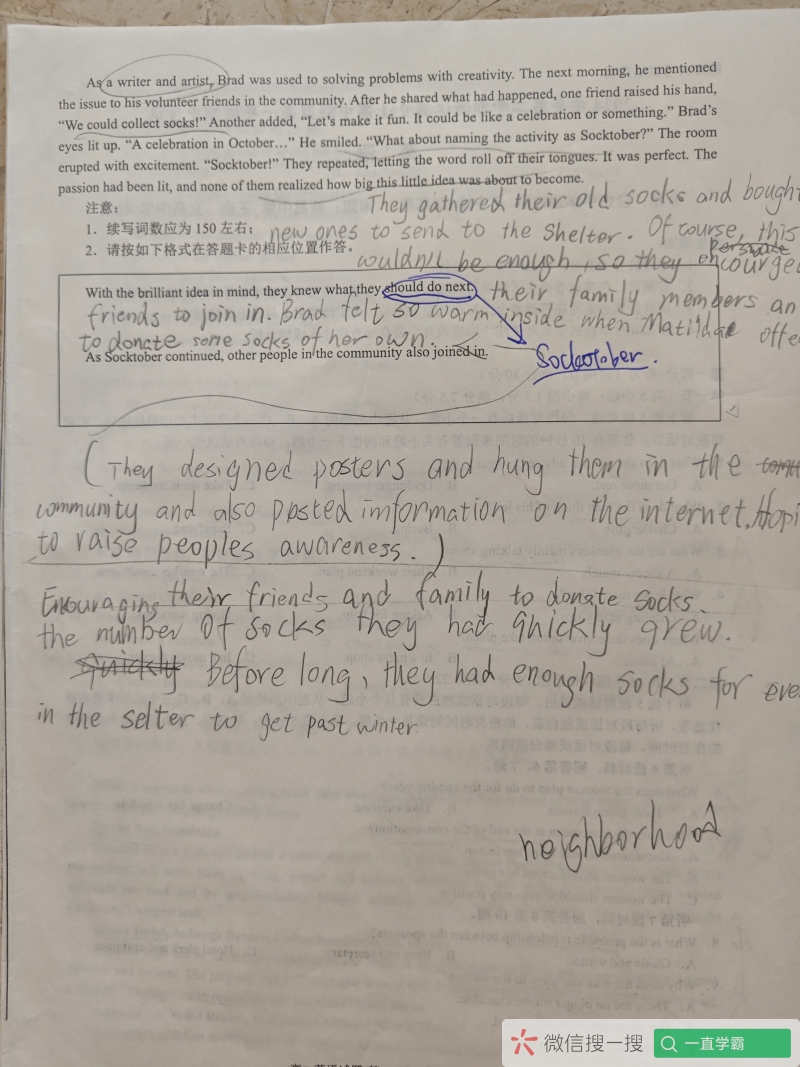 As a writer and artist, Brad was used to solving problems with creativity. The next morning, he mentioned
the issue to his volunteer friends in the community. After he shared what had happened, one friend raised his hand,
“We could collect socks!” Another added, “Let’s make it fun. It could be like a celebration or something.” Brad’s
eyes lit up. “A celebration in October…” He smiled. “What about naming the activity as Socktober?” The room
erupted with excitement. “Socktober!” They repeated, letting the word roll off their tongues. It was perfect. The
passion had been lit, and none of them realized how big this little idea was about to become.
注意：
They gathered their old socks and bought
1．续写词数应为 150 左右；
new ones to send to the shelter. Of course, this
2．请按如下格式在答题卡的相应位置作答。
Persuade
wouldn't be enough, so they encourged
With the brilliant idea in mind, they knew what they should do next.
their family members an
friends to join in. Brad felt so warm inside when Matildae offe
to donate some socks of her own.
As Socktober continued, other people in the community also joined in.
Socktober.
(They designed posters and hung them in the
community and also posted imformation on the internet, Hopi
to raise peoples awareness.)
Encouraging their friends and family to donate socks.
the number of socks they had quickly grew.
Quickly Before long, they had enough socks for eve
in the selter to get past winter
neighborhood
微信搜一搜
一直学霸